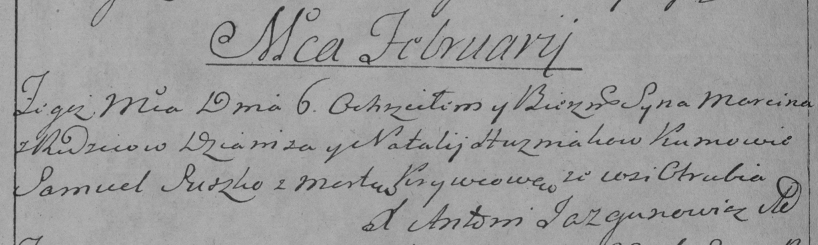 Mca Februarij
Tegoż Mca Dnia 6. Ochrzciłem y Bierzm Syna Marcina
z Rodzicow Dzianisa y Natalij Huzniakow Kumowie
Samuel Suszko z Martą Krywcową ze wsi Otrubia
X Antoni Jazgunowicz